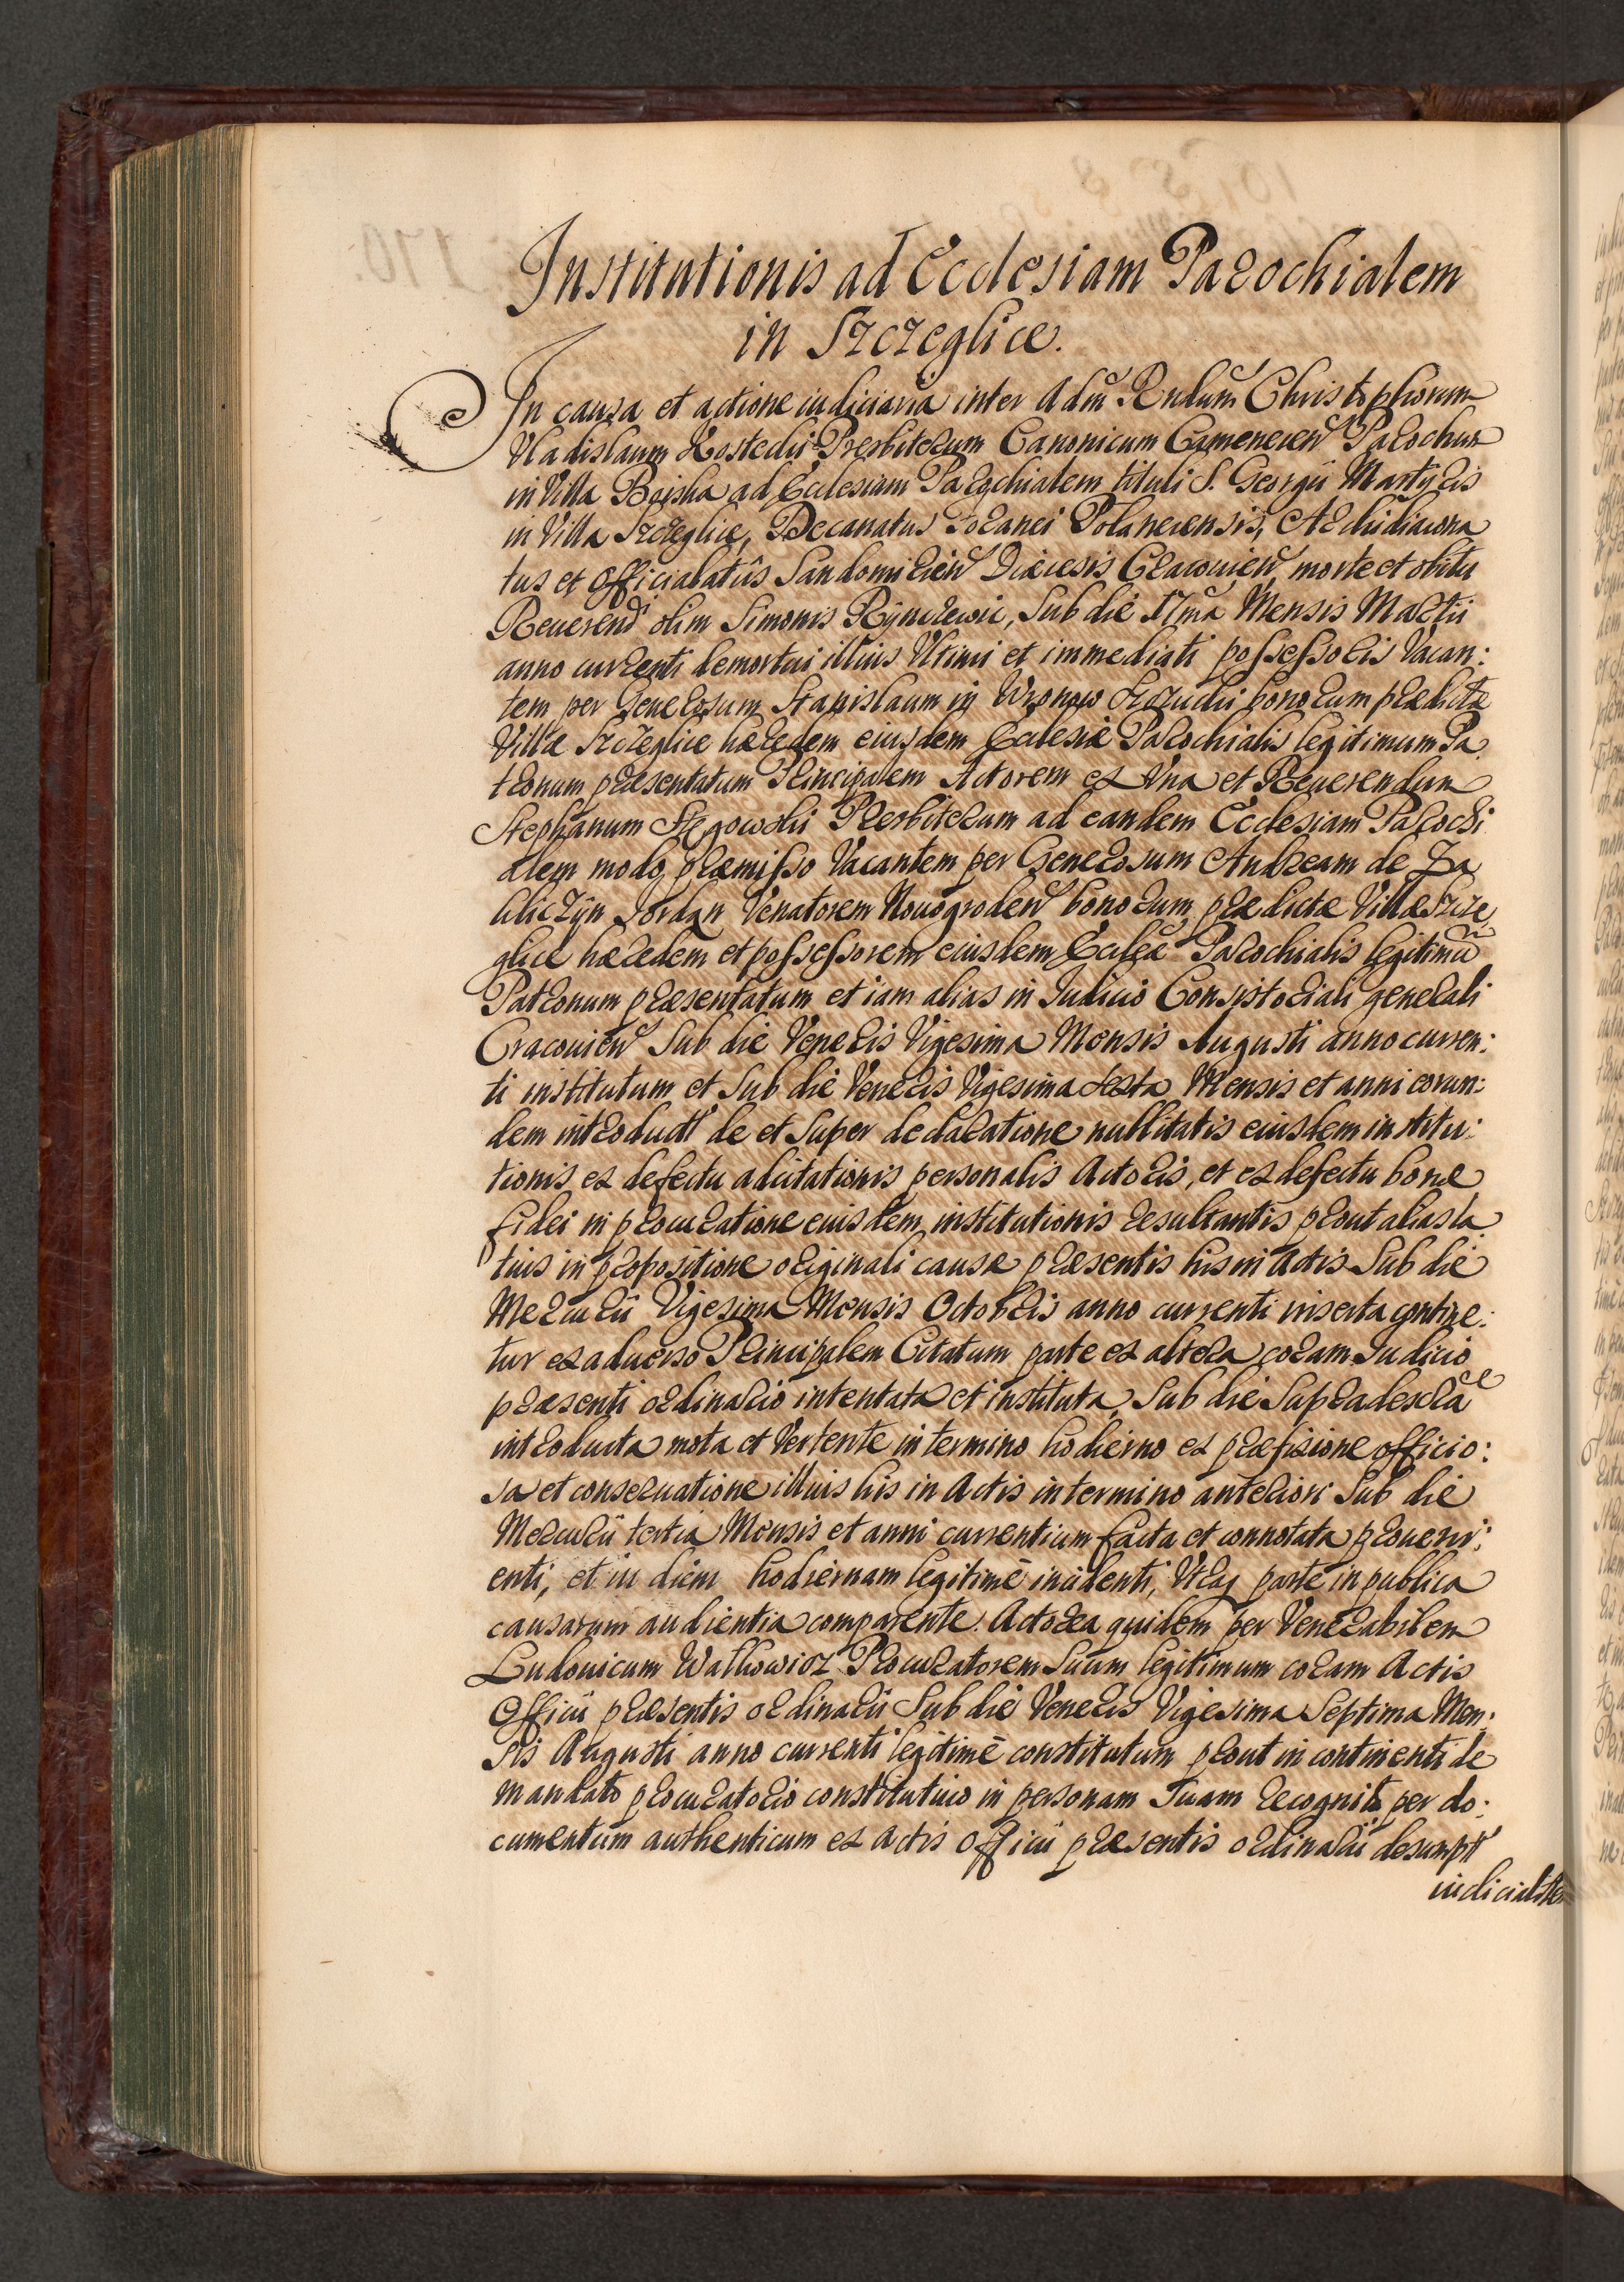 Institutionis ad Ecclesiam Parochialem
in Szczeglice.
In causa et actione iudiciaria inter Adm̃ Rndum̃ Christophorum
Vladislaum Kostecki Presbiterum Canonicum Camenecen̄ Parochum
in Villa Boiska ad Ecclesiam Parochialem tituli S. Georgii Martÿris
in Villa Szczeglice, Decanatus Foranei Polanecensis, Archidiacona
tus et Officialatûs Sandomirien̄ Diæcesis Cracouien̄ morte et obitu
Reuerend olim Simonis Rÿnczewic, Sub die 17ma Mensis Martii
anno currenti demortui illius Vltimi et immediati possessoris Vacan:
tem per Generosum Stanislaum in Wronow bonorum prædictæ
Villæ Szczeglice hæredem eiusdem Ecclesiæ Parochialis legitimum Pa
tronum præsentatum Principalem Actorem ex Vna et Reuerendum
Stephanum Presbiterum ad eandem Ecclesiam Parochi
alem modo præmisso Vacantem per Generosum Andream de Za
kliczÿn Jordan Venatorem Nouogroden̄ bonorum prædictæ Villæ Szcze
glice hæredem et possessorem eiusdem Eccleæ Parochialis legitimũ
Patronum præsentatum et iam alias in Iudicio Consistoriali generali
Cracouien̄ Sub die Veneris Vigesima Mensis Augusti anno curren:
ti institutum et Sub die Veneris Vigesima sexta Mensis et anni eorun:
dem introduct de et Super declaratione nullitatis eiusdem institu:
tionis ex defectu adcitationis personalis Actoris, et ex defectu bonæ
fidei in procuratione eiusdem institutionis resultantis prout alias la
tius in propositione originali causæ præsentis his in Actis Sub die
Mercurii Vigesima Mensis Octobris anno currenti inserta contine:
tur ex aduerso Principalem Citatum parte ex altera coram Iudicio
præsenti ordinario intentata et instituta, Sub die Supradescta
introducta mota et Vertente in termino hodierno ex præfixione officio:
sa et conseruatione illius his in Actis in termino anteriori Sub die
Mercurii tertia Mensis et anni currentium facta et connotata proueni:
enti, et in diem hodiernam legitimè incidenti, Vtraq parte in publica
causarum audientia comparente. Actorea quidem per Venerabilem
Ludouicum Walkowicz Procuratorem Suum legitimum coram Actis
Officii præsentis ordinarii Sub die Veneris Vigesima Septima Men:
sis Augusti anno currenti legitimè constitutum prout in continenti de
mandato procuratorio constitutiuo in personam Suam recognit per do:
cumentum authenticum ex Actis officii præsentis ordinarii desumpt
iudicialiter